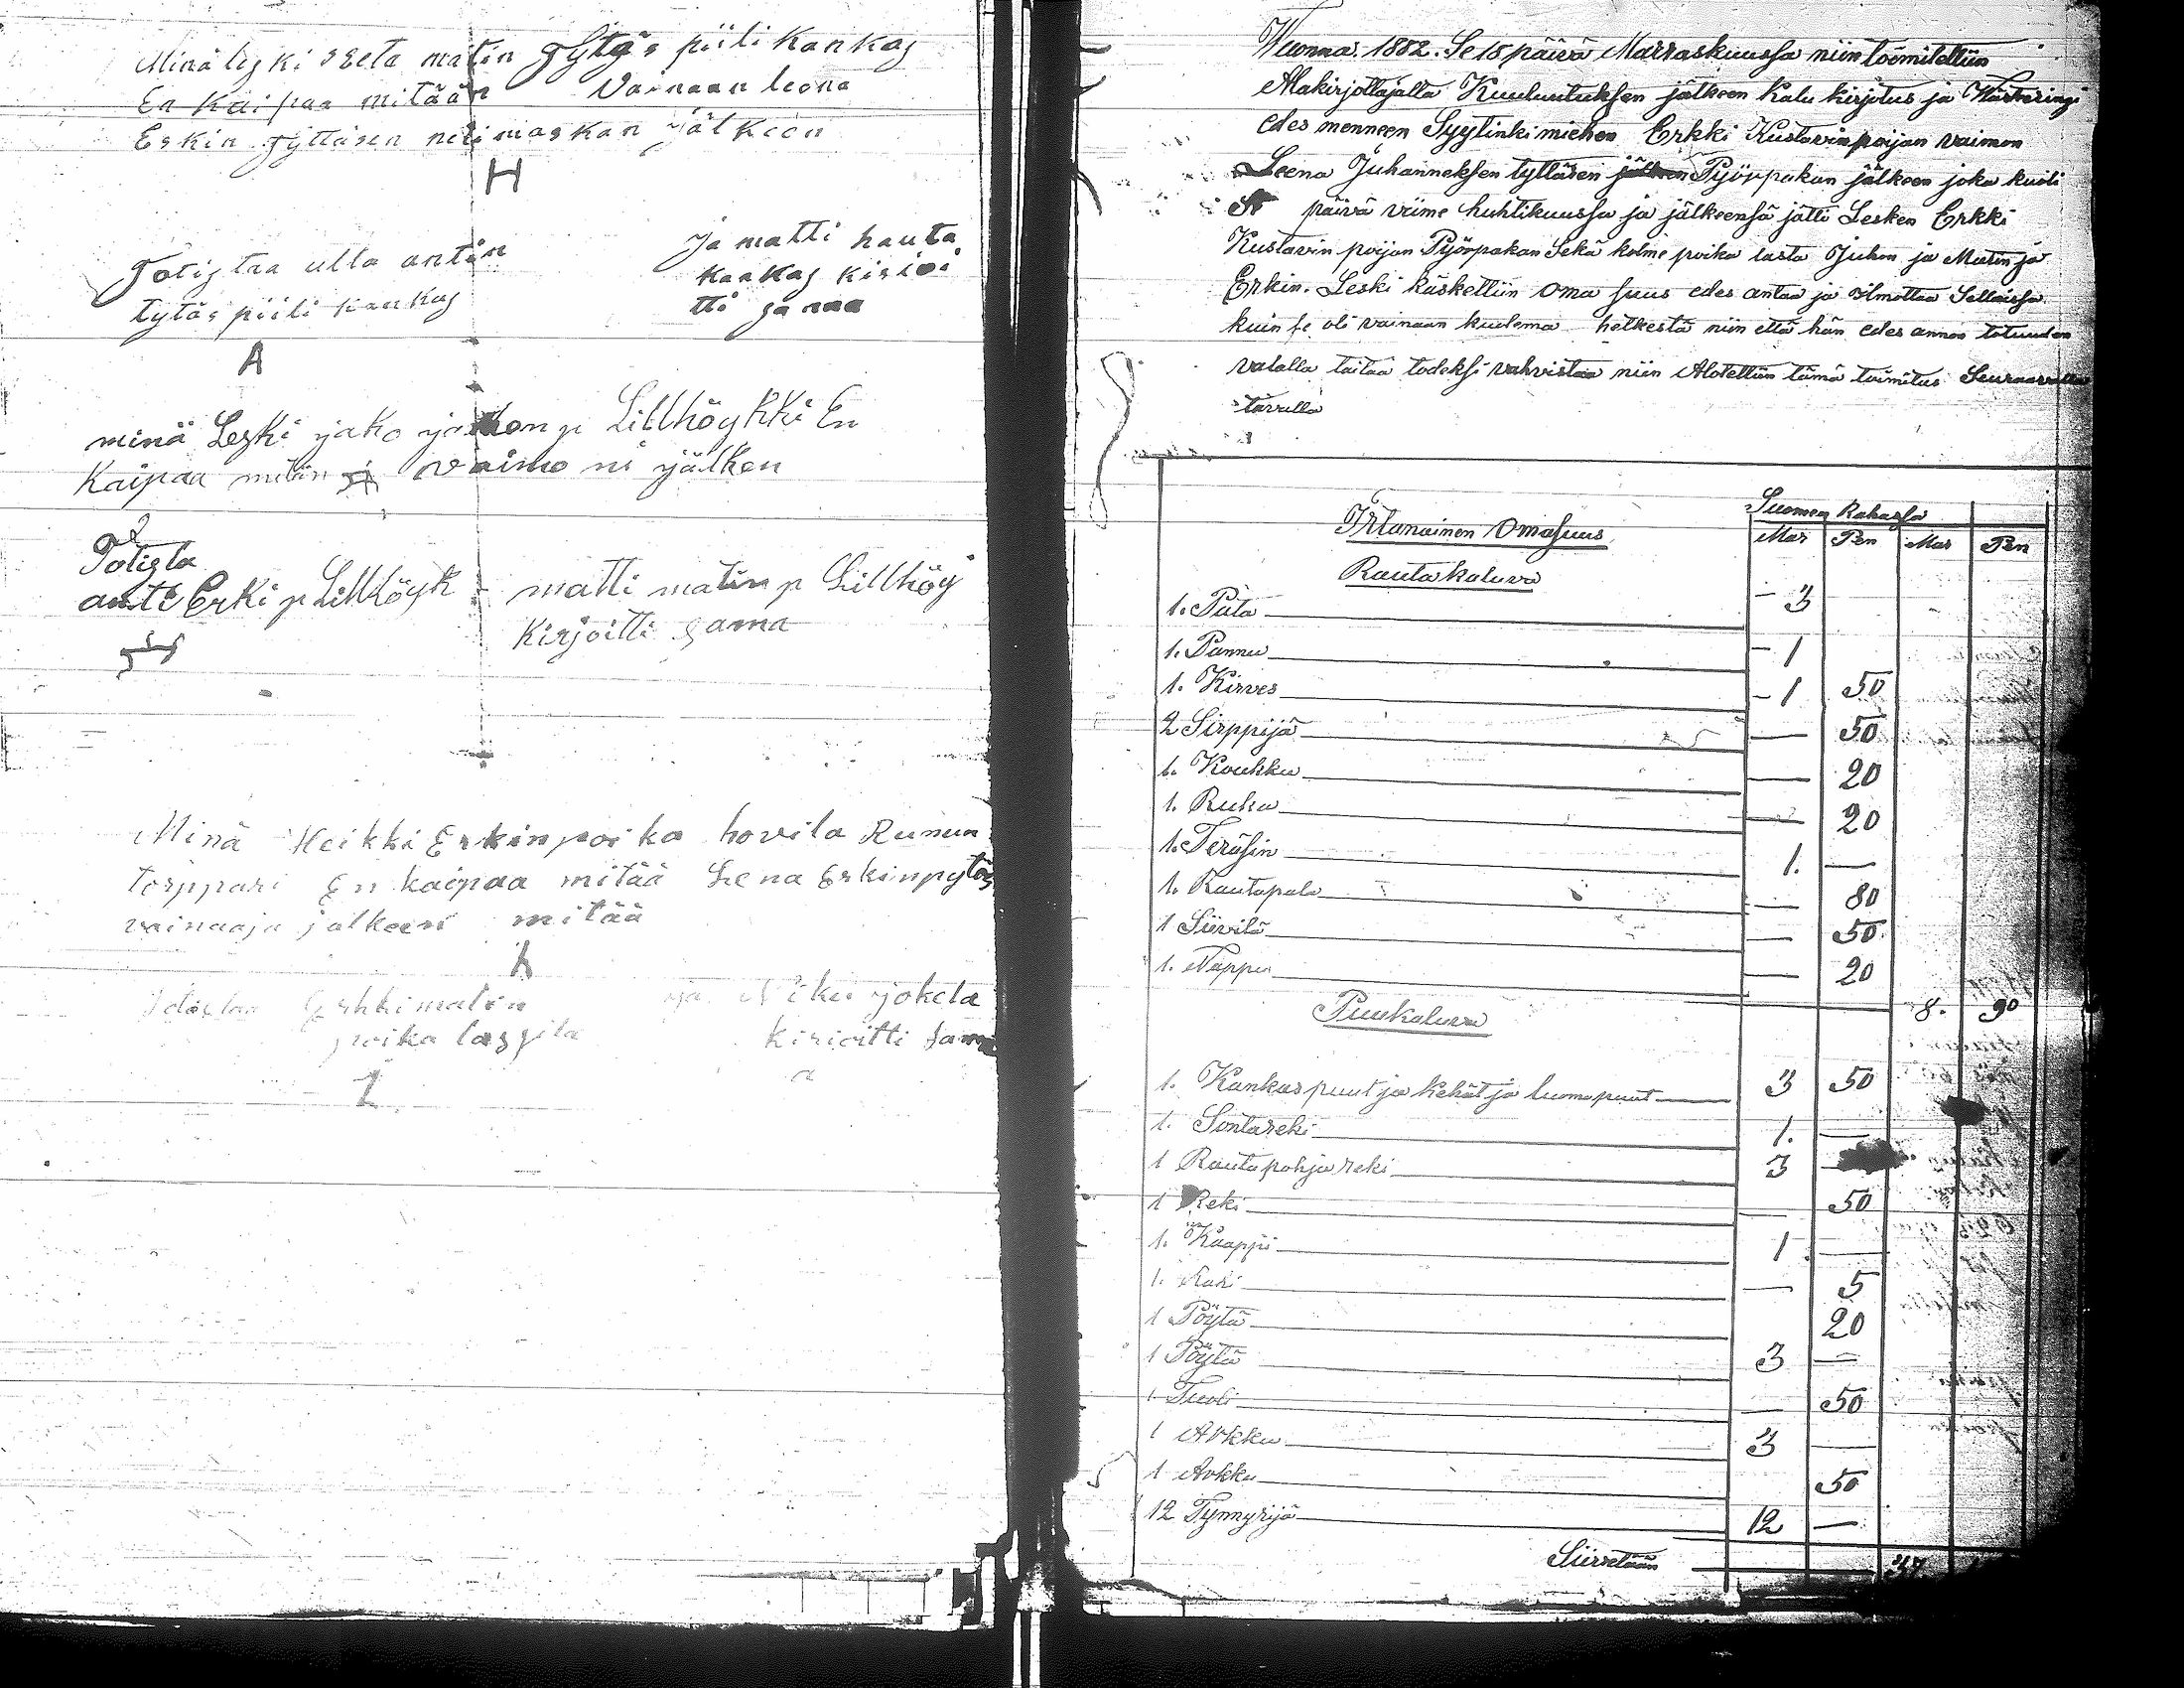 Minä leski reeta matin Tytär piilikankas
En kaipaa mitään Vainaan leena
Erkin Tyttäsen jälkeen
H
Totistaa ulla antin
tytäs piili kankas
A
ja matti hauta
kankas kirioi
tti sanaa
minä Leski jako Lillhöykki En
Kaipaa mitän vaimo ni jälken
Totista
anti Erki p Lillhöyk
matti matin p Lillhöy
Kirjoitti sama
Minä Heikki Erkinpoika hovila Runun
torppari En kaipaa mitää Lena Erkinpytäs
vainaaja jälkeen mitää
h
Erkki matin
poika lassila
jokela
kirioitti sama
Wuonna. 1882. Se 15 päivä Marraskuussa niin toomitettiin
Alakirjottajalla Kuulutuksen jälkeen kalu kirjotus ja Wärteringi
edes menneen Syytinki miehen Erkki Kustavinpoijan vaimon
Leena Juhanneksen tyttären Pyörpakan jälkeen joka kuoli
päivä viime huhtikuussa ja jälkeensä jätti Lesken Erkki
Kustavin poijan Pyörpakan Sekä kolme poika lasta Juhon ja Matin ja
Erkin. Leski käskettiin oma suus edes antaa ja ilmottaa Sellaissa
kuin se oli vainaan kuolema hetkestä niin että hän edes annon totuuden
valalla taitaa todeksi vahvistaa niin Alotettiin tämä toimitus Seuraavalla
tavalla
Suomen Rahassa
Irtanainen Omasuus Mar Pen Mar Pen
Rautakaluva
1. Pata 3
1. Pannu 1
1. Kirves 1 50
2 Sirppijä 50
1. Koukku 20
1. Ruka 20
1. Teräsin 1. —
1. Rautapala 80
1 Siivilä 50
1. Nappu 20
8. 90
Puukaluva
1. Kankaspuut ja Kehät ja luomapuut 3 50
1. Sontareki 1. —
1 Rautapohja reki 3 —
1 Reki 50
1. Kaappi 1 —
1. 5
1 Pöytä 20
1 Pöytä 3 —
1 Tuoli 50
1 Arkku 3 —
1 Arkku 50
12 Tynnyrijä 12 —
Siirretään